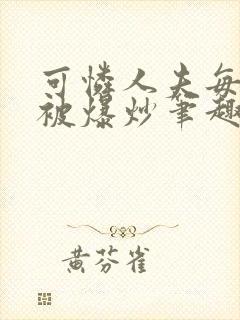 可怜人夫每
被爆炒笔趣
黄芬雀